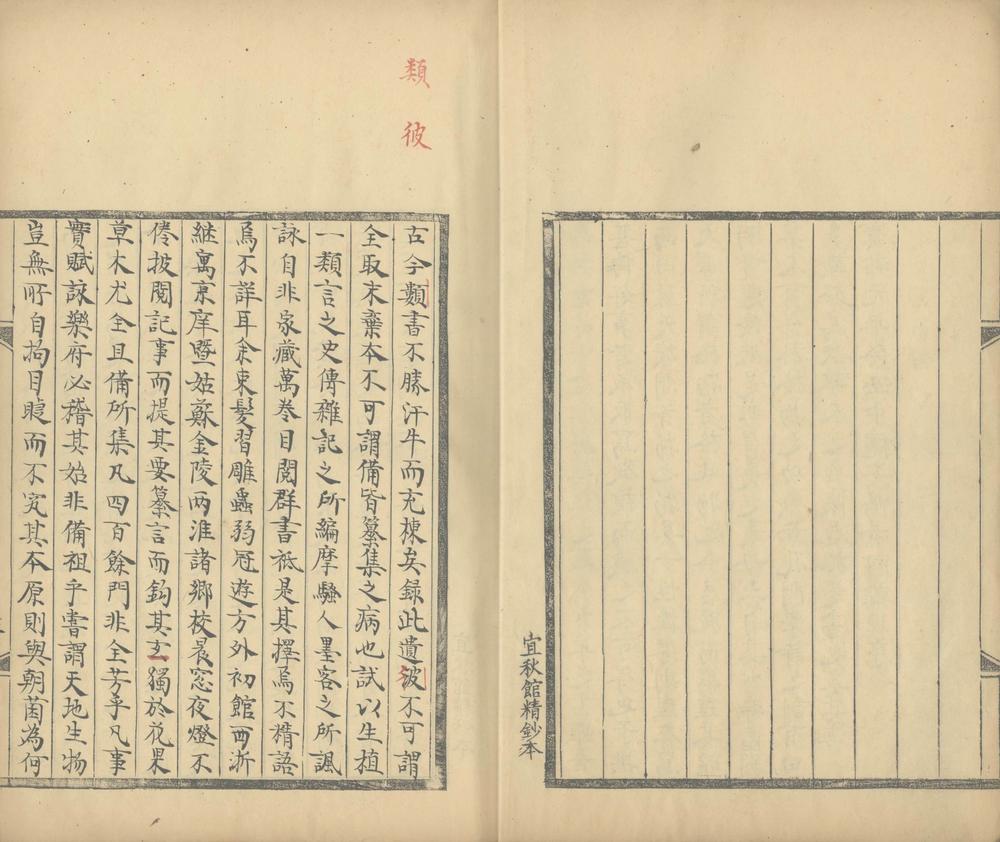 宜秋館精鈔本
類
彼
古今類書不勝汗牛而充棟矣録此遺波不可謂
全取末棄本不可謂備皆纂集之病也試以生植
一類言之史傳雜記之所編摩騷人墨客之所諷
詠自非家藏萬卷目閱群書祗是其擇焉不精語
焉不詳耳余束髮習雕蟲弱冠遊方外初館西浙
継寓京庠暨姑蘇金陵兩淮諸鄉校晨窓夜燈不
倦披閱記事而提其要纂言而鈎其玄獨於花果
草木尤全且備所集凡四百餘門非全芳乎凡事
實賦詠樂府必稽其始非備祖乎嘗謂天地生物
豈無所自拘目睫而不究其本原則與朝菌為何